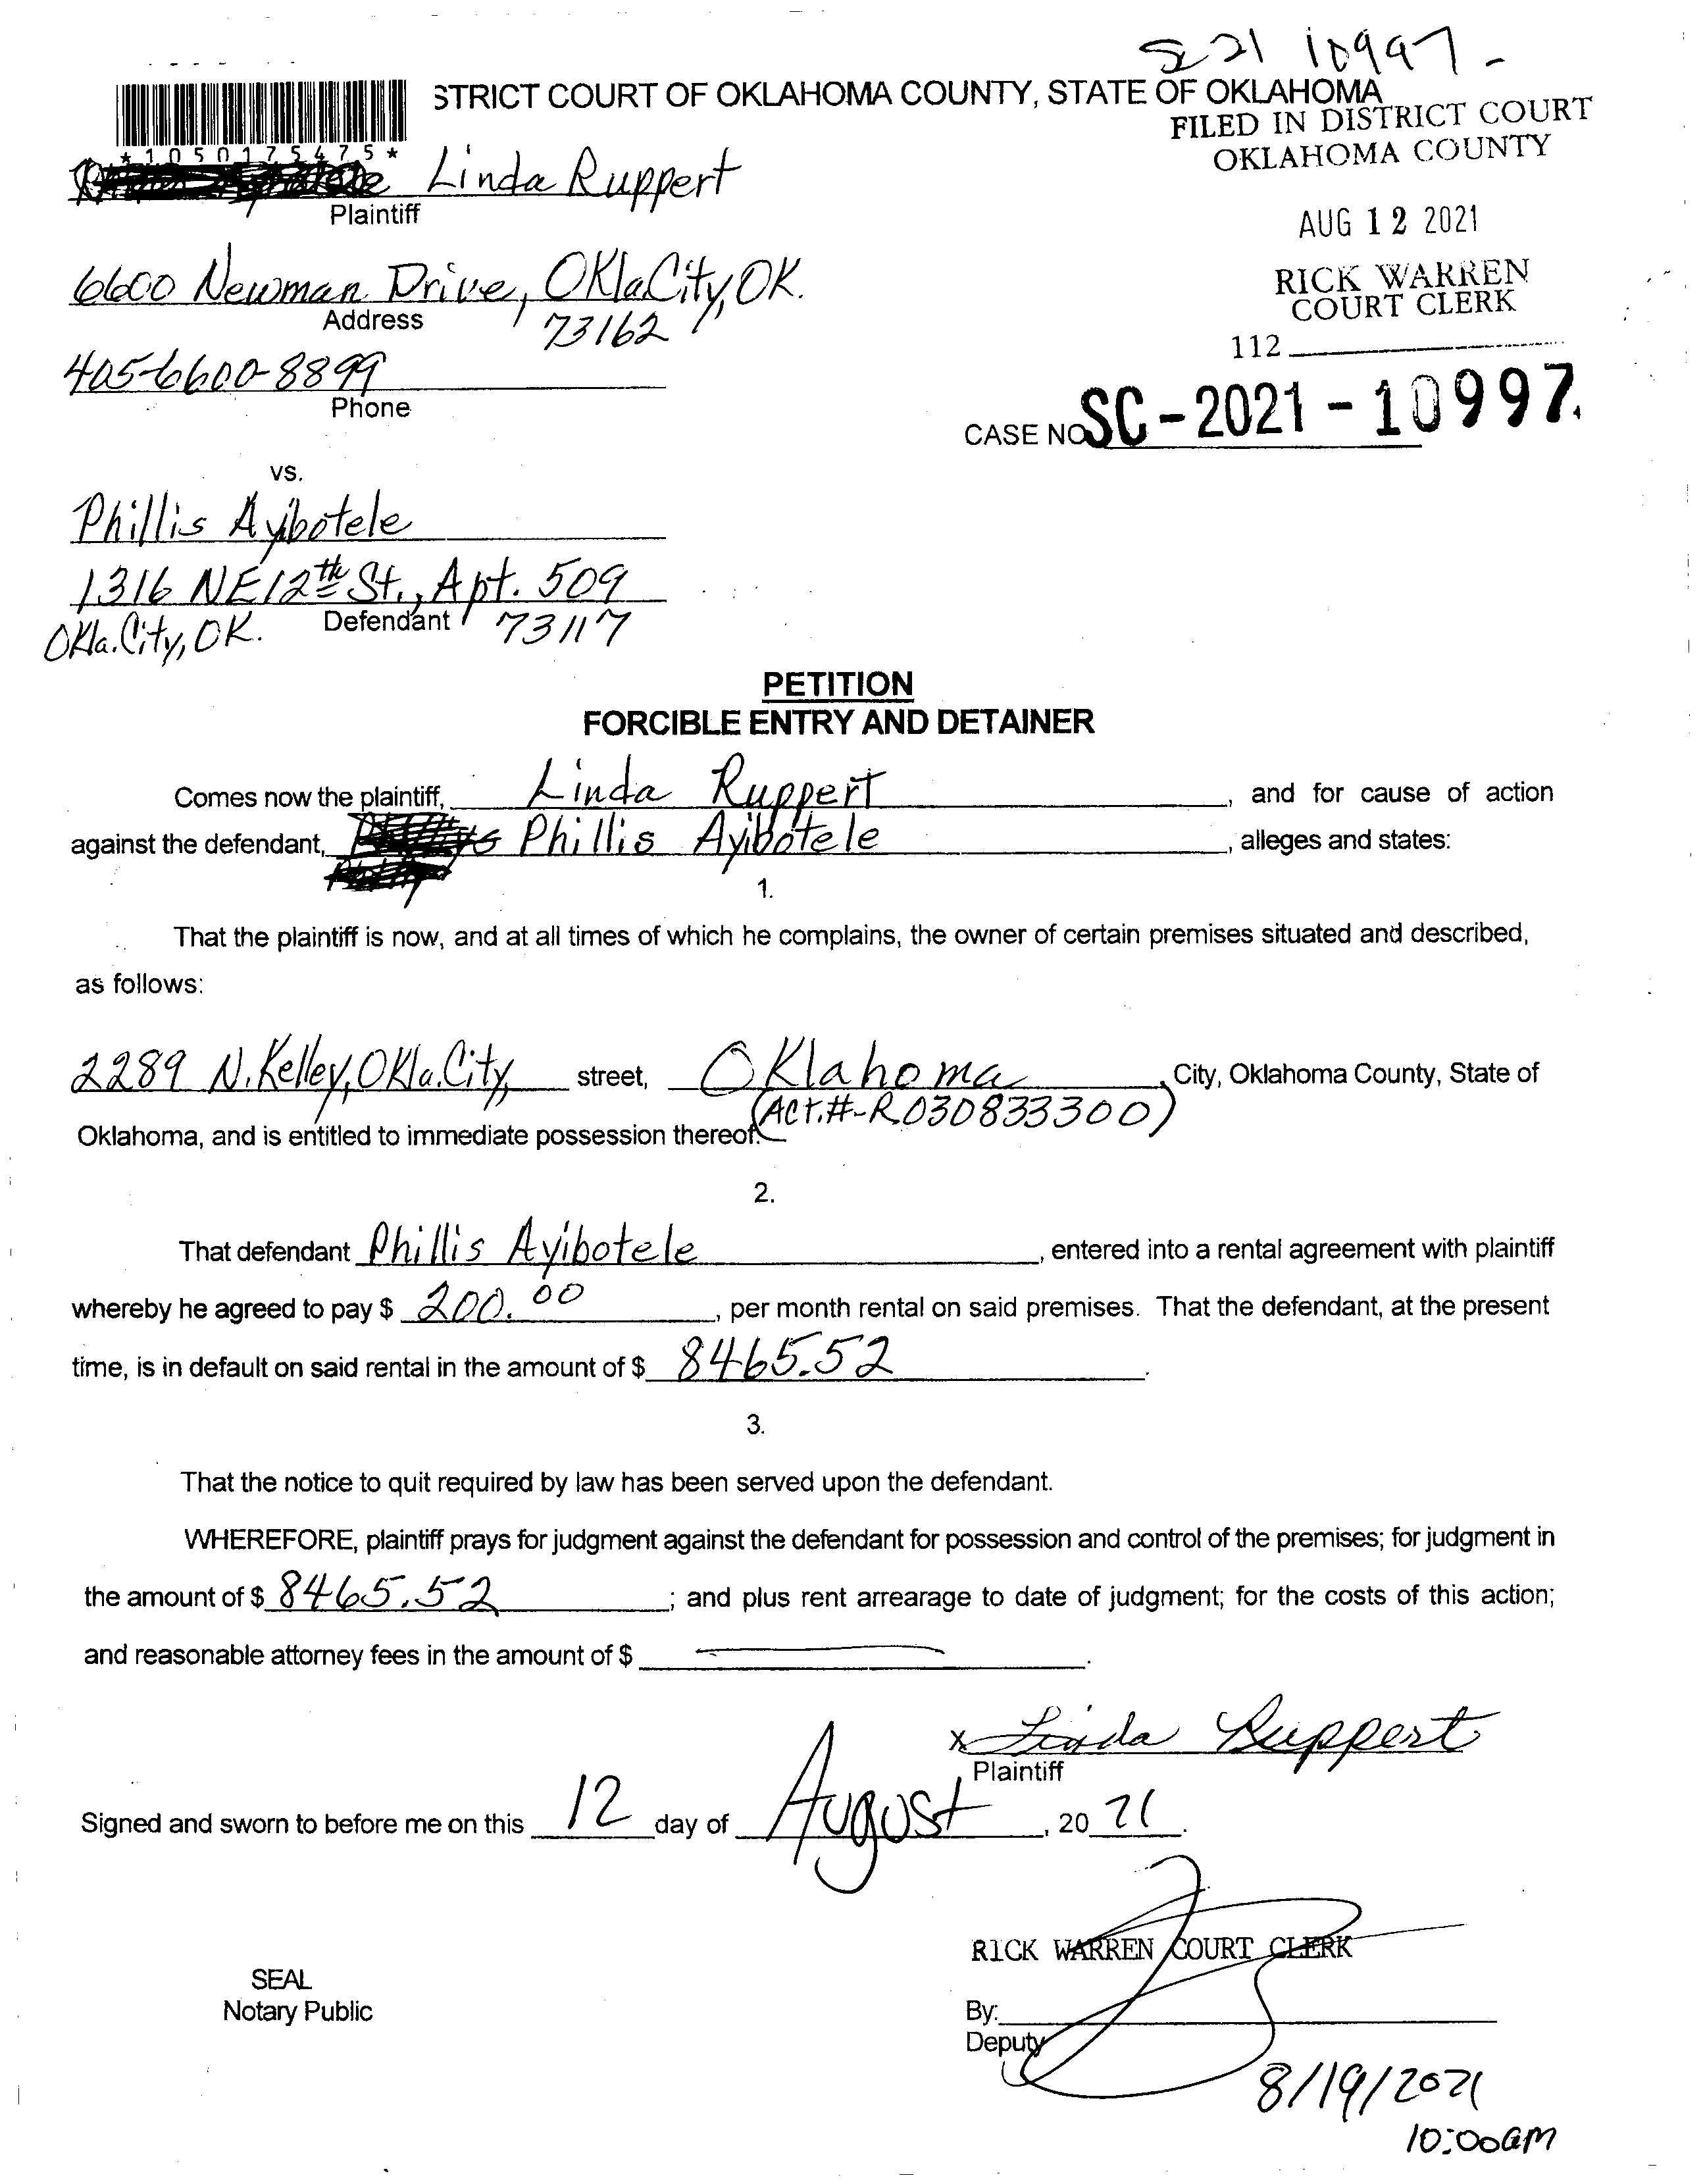 S 21 10997-
STRICT COURT OF OKLAHOMA COUNTY, STATE OF OKLAHOMA
FILED IN DISTRICT COURT
OKLAHOMA COUNTY
*1050175475*
Linda Ruppert
Plaintiff
AUG 12 2021
6600 Newman Drive, Okla.City, OK.
Address
73162
RICK WARREN
COURT CLERK
112
405-6600-8899
Phone
CASE NO SC-2021-10997
vs.
Phillis Ayibotele
1316 NE 12th St., Apt. 509
Defendant
Okla. City, OK. 73117
PETITION
FORCIBLE ENTRY AND DETAINER
Comes now the plaintiff, Linda Ruppert, and for cause of action
against the defendant, Phillis Ayibotele, alleges and states:
1.
That the plaintiff is now, and at all times of which he complains, the owner of certain premises situated and described,
as follows:
2289 N. Kelley, Okla. City, street, Oklahoma, City, Oklahoma County, State of
(Act.#-R030833300)
Oklahoma, and is entitled to immediate possession thereof.
2.
That defendant Phillis Ayibotele, entered into a rental agreement with plaintiff
whereby he agreed to pay $ 200.00, per month rental on said premises. That the defendant, at the present
time, is in default on said rental in the amount of $ 8465.52.
3.
That the notice to quit required by law has been served upon the defendant.
WHEREFORE, plaintiff prays for judgment against the defendant for possession and control of the premises; for judgment in
the amount of $ 8465.52; and plus rent arrearage to date of judgment; for the costs of this action;
and reasonable attorney fees in the amount of $ .
x Linda Ruppert
Plaintiff
Signed and sworn to before me on this 12 day of August, 20 21.
RICK WARREN COURT CLERK
SEAL
Notary Public
By:
Deputy
8/19/2021
10:00am